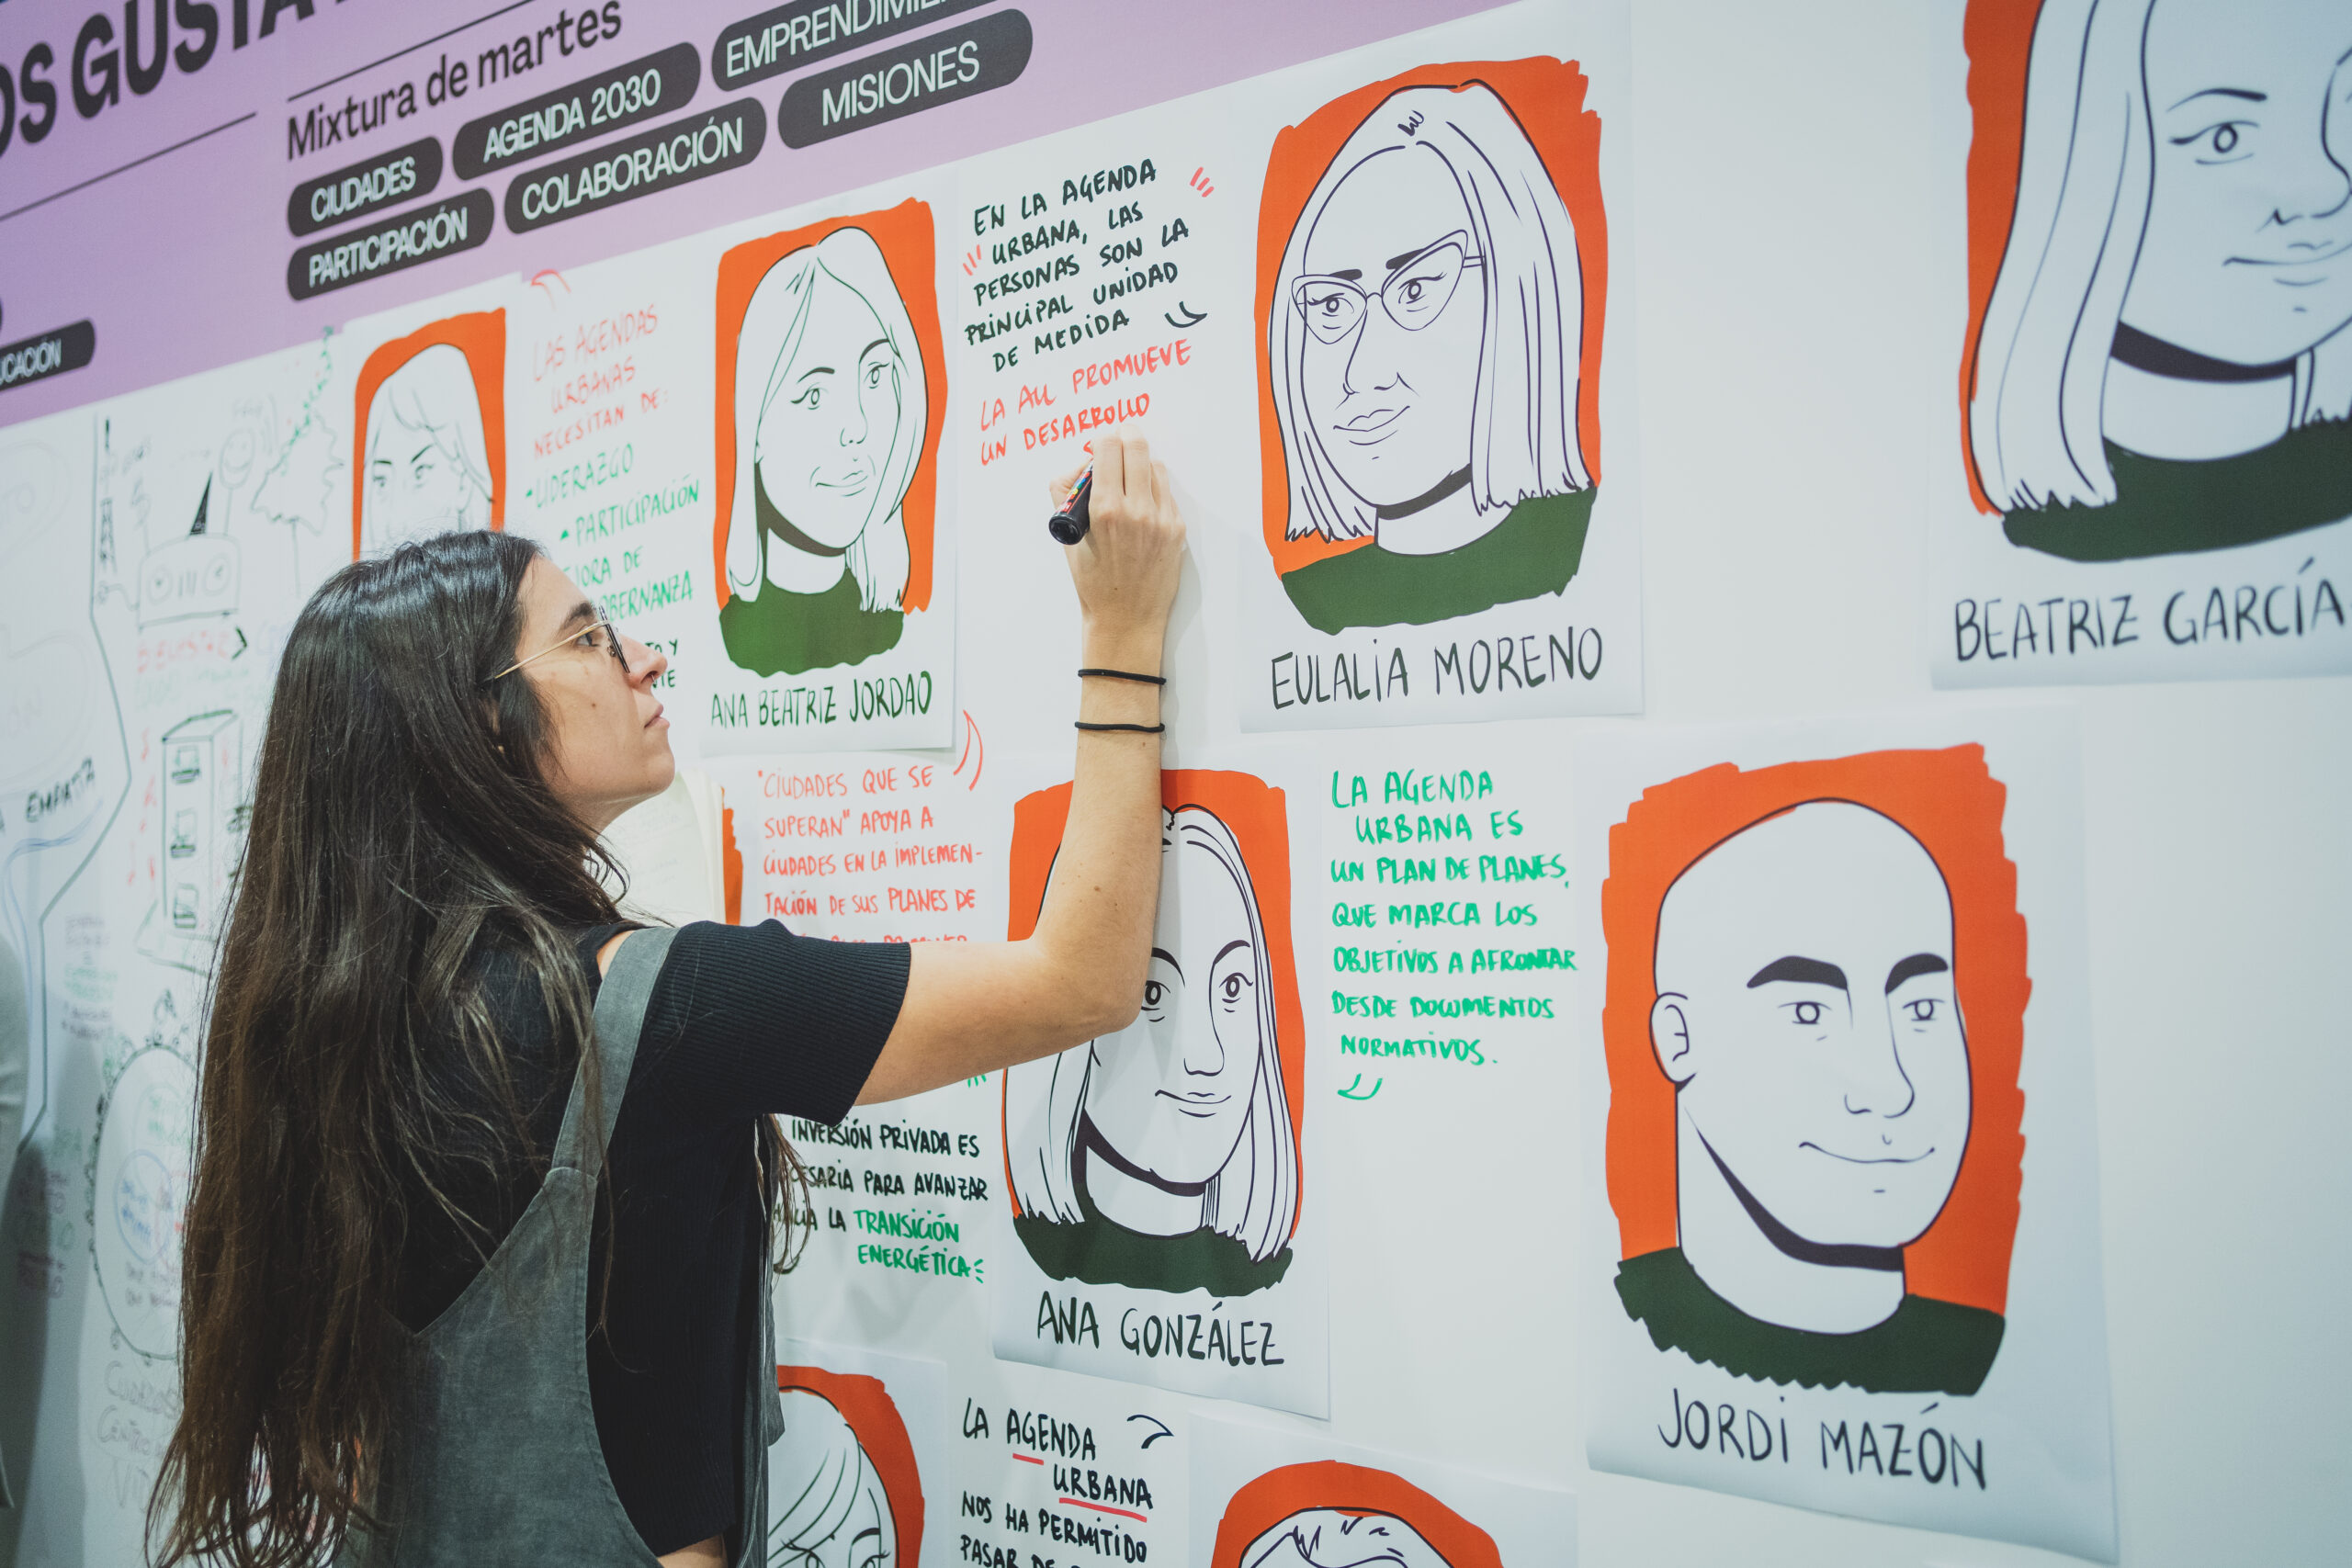 OS GUSTA
Mixtura de martes
CIUDADES
AGENDA 2030
EMPRENDIMIE
PARTICIPACIÓN
COLABORACIÓN
MISIONES
UCACIÓN
LAS AGENDAS
URBANAS
NECESITAN DE:
-LIDERAZGO
-PARTICIPACIÓN
JORA DE
OBERNANZA
TO Y
TE
ANA BEATRIZ JORDAO
EN LA AGENDA
URBANA, LAS
PERSONAS SON LA
PRINCIPAL UNIDAD
DE MEDIDA
LA AU PROMUEVE
UN DESARROLLO
S
EULALIA MORENO
BEATRIZ GARCÍA
EMPATÍA
BIENESTAR
"CIUDADES QUE SE
SUPERAN" APOYA A
CIUDADES EN LA IMPLEMEN-
TACIÓN DE SUS PLANES DE
INVERSIÓN PRIVADA ES
ESARIA PARA AVANZAR
HACIA LA TRANSICIÓN
ENERGÉTICA
ANA GONZÁLEZ
LA AGENDA
URBANA ES
UN PLAN DE PLANES,
QUE MARCA LOS
OBJETIVOS A AFRONTAR
DESDE DOCUMENTOS
NORMATIVOS.
JORDI MAZÓN
LA AGENDA
URBANA
NOS HA PERMITIDO
PASAR DE